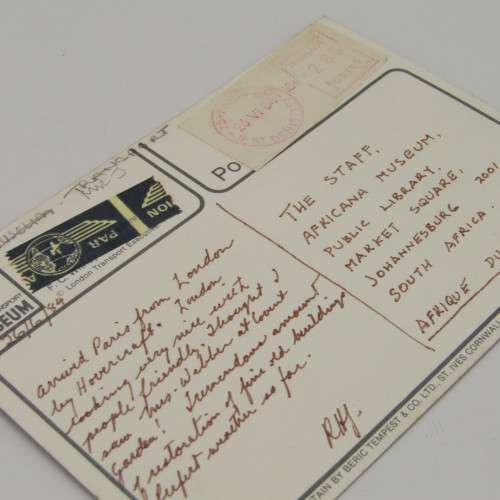 TRANSPORT
MUSEUM
PAR
ION
© London Transport Exec
26/6/84
Po
280
POSTES
Arrived Paris from London
by Hovercraft. London
looking very nice with
people friendly. Thought I
saw Mrs. Webber at Covent
Garden! Tremendous amount
of restoration of fine old buildings
Perfect weather so far.
RHJ.
THE STAFF,
AFRICANA MUSEUM,
PUBLIC LIBRARY,
MARKET SQUARE,
JOHANNESBURG 2001
SOUTH AFRICA.
AFRIQUE DU
TAIN BY BERIC TEMPEST & CO. LTD., ST. IVES CORNWA